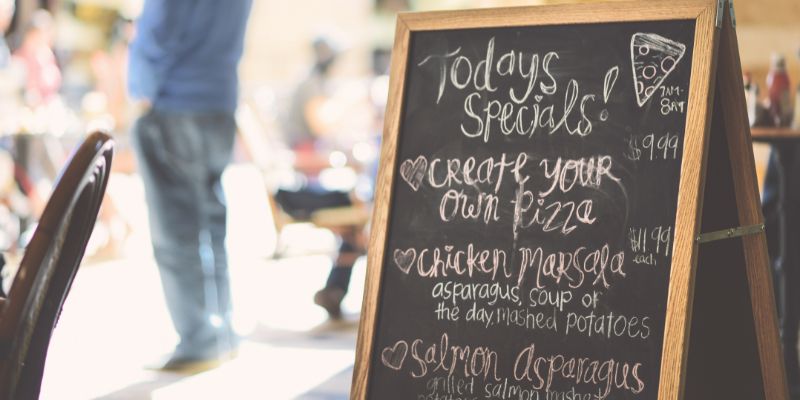 Todays
Specials!
7AM-
8PM
$9.99
♡Create your
own Pizza
$11.99
each
♡Chicken Marsala
asparagus, soup of
the day, mashed potatoes
♡Salmon Asparagus
grilled salmon mashed
potatoes